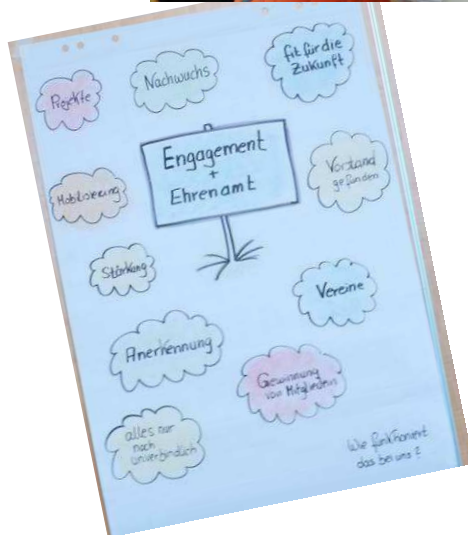 Projekte
Nachwuchs
fit für die
Zukunft
Engagement
+
Ehrenamt
Mobilisierung
Vorstand
gefunden
Stärkung
Vereine
Anerkennung
Gewinnung
von Mitgliedern
alles nur
noch
unverbindlich
Wie funktioniert
das bei uns?